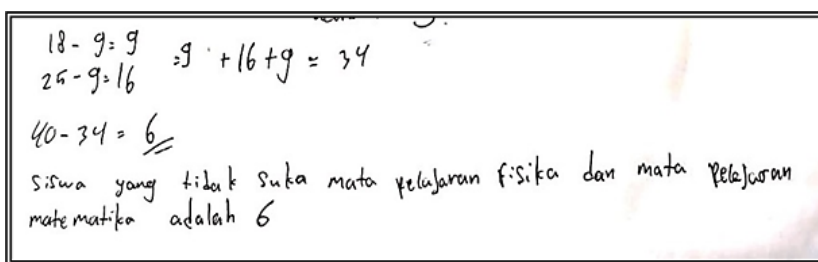 18 - 9 = 9
25 - 9 = 16
= 9 + 16 + 9 = 34
40 - 34 = 6
Siswa yang tidak suka mata pelajaran fisika dan mata pelajaran
matematika adalah 6